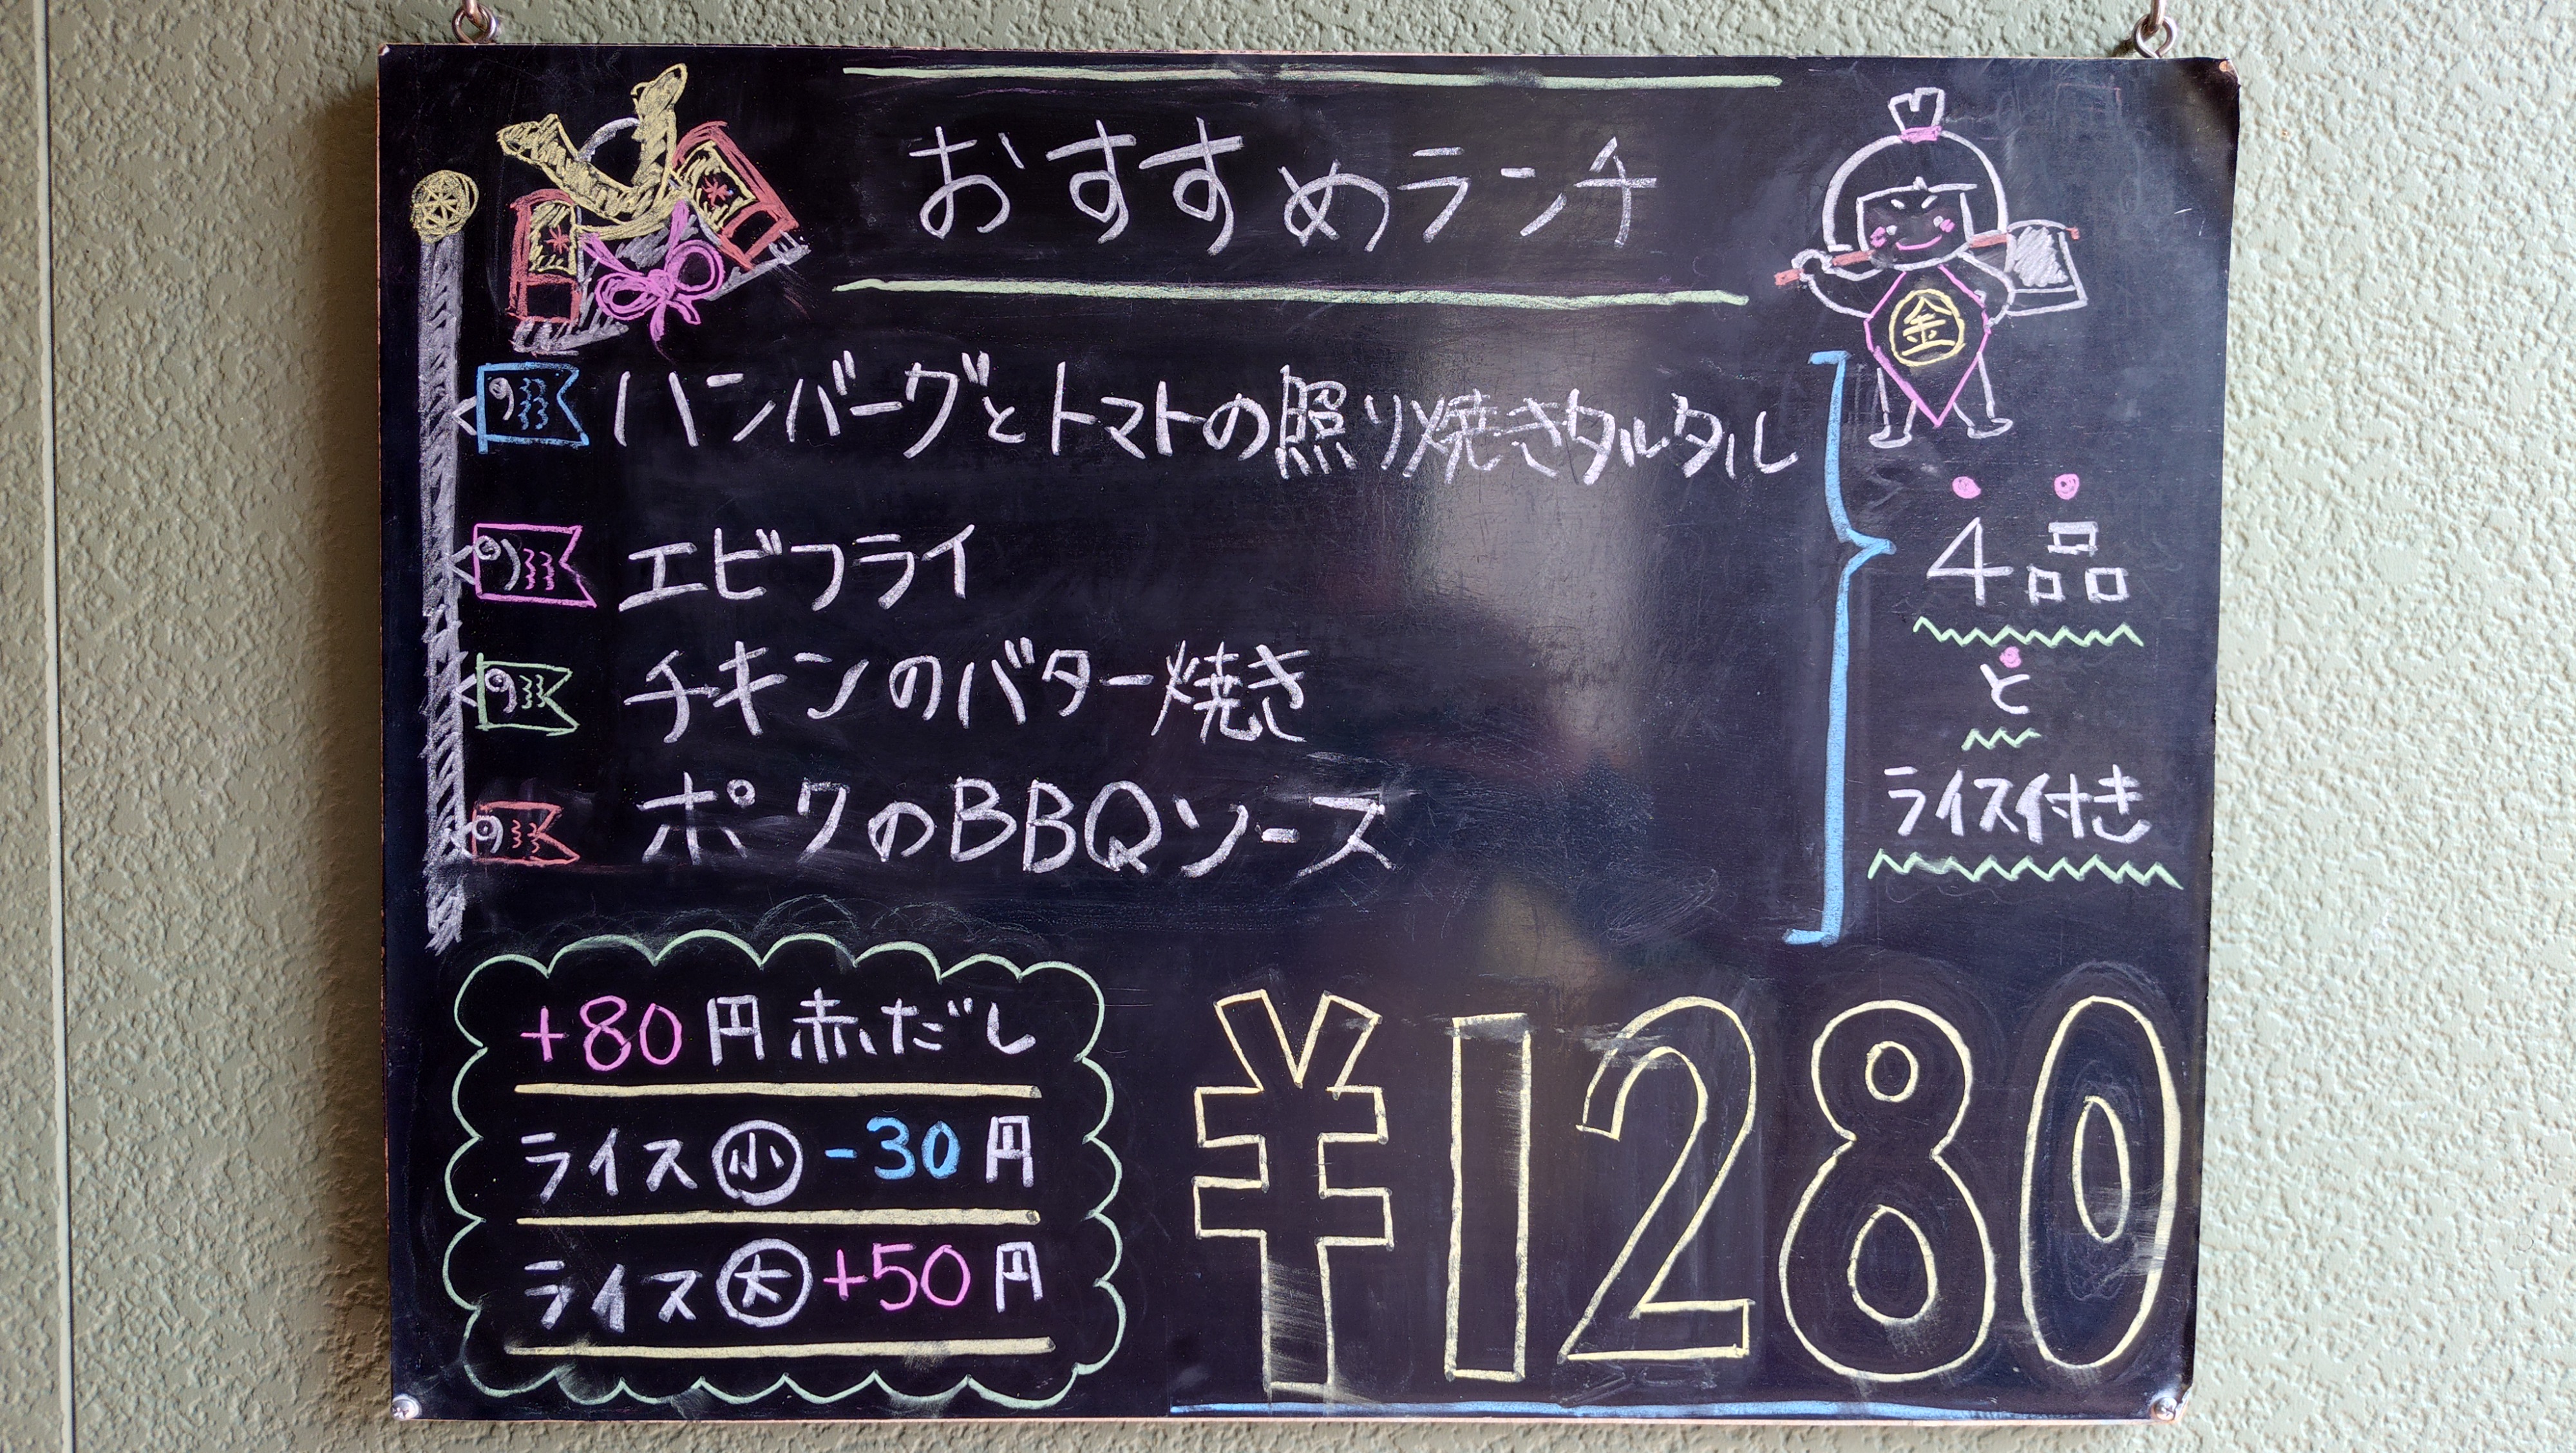 おすすめランチ
金
ハンバーグとトマトの照り焼きタルタル
エビフライ
チキンのバター焼き
ポークのBBQソース
4品
と
ライス付き
+80円 赤だし
ライス㊙小 -30円
ライス大 +50円
¥1280